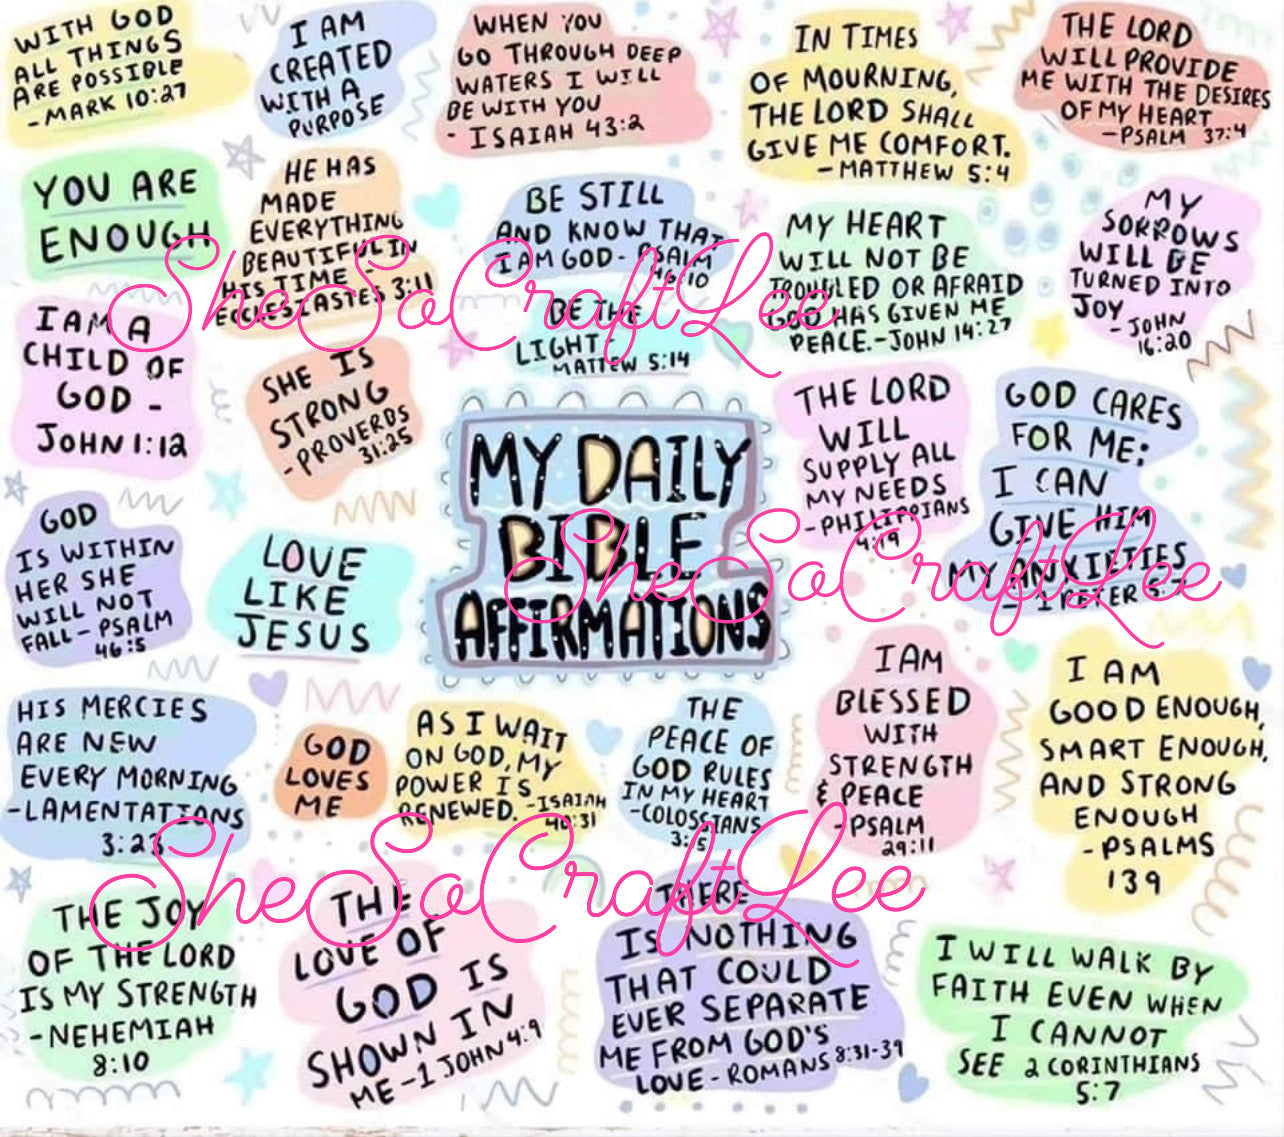 WITH GOD
ALL THINGS
ARE POSSIBLE
-MARK 10:27
I AM
CREATED
WITH A
PURPOSE
WHEN YOU
GO THROUGH DEEP
WATERS I WILL
BE WITH YOU
- ISAIAH 43:2
IN TIMES
OF MOURNING,
THE LORD SHALL
GIVE ME COMFORT.
- MATTHEW 5:4
THE LORD
WILL PROVIDE
ME WITH THE DESIRES
OF MY HEART
-PSALM 37:4
YOU ARE
ENOUGH
HE HAS
MADE
EVERYTHING
BEAUTIFUL IN
HIS TIME -
ECCLESIASTES 3:11
BE STILL
AND KNOW THAT
I AM GOD- PSALM
46:10
MY HEART
WILL NOT BE
TROUBLED OR AFRAID
GOD HAS GIVEN ME
PEACE.-JOHN 14:27
MY
SORROWS
WILL BE
TURNED INTO
JOY
- JOHN
16:20
SheSoCraftLee
I AM A
CHILD OF
GOD -
JOHN 1:12
SHE IS
STRONG
-PROVERDS
31:25
BE THE
LIGHT-
MATTEW 5:14
MY DAILY
BIBLE
AFFIRMATIONS
THE LORD
WILL
SUPPLY ALL
MY NEEDS
-PHILIPPIANS
4:19
GOD CARES
FOR ME:
I CAN
GIVE HIM
MY ANXIETIES
- 1 PETER
SheSoCraftLee
GOD
IS WITHIN
HER SHE
WILL NOT
FALL- PSALM
46:5
LOVE
LIKE
JESUS
HIS MERCIES
ARE NEW
EVERY MORNING
-LAMENTATIONS
3:23
GOD
LOVES
ME
AS I WAIT
ON GOD, MY
POWER IS
RENEWED. -ISAIAH
40:31
THE
PEACE OF
GOD RULES
IN MY HEART
-COLOSSIANS
3:15
I AM
BLESSED
WITH
STRENGTH
& PEACE
-PSALM
29:11
I AM
GOOD ENOUGH,
SMART ENOUGH,
AND STRONG
ENOUGH
- PSALMS
139
SheSoCraftLee
THE JOY
OF THE LORD
IS MY STRENGTH
-NEHEMIAH
8:10
THE
LOVE OF
GOD IS
SHOWN IN
ME -1 JOHN 4:9
THERE
IS NOTHING
THAT COULD
EVER SEPARATE
ME FROM GOD'S
LOVE - ROMANS 8:31-39
I WILL WALK BY
FAITH EVEN WHEN
I CANNOT
SEE 2 CORINTHIANS
5:7